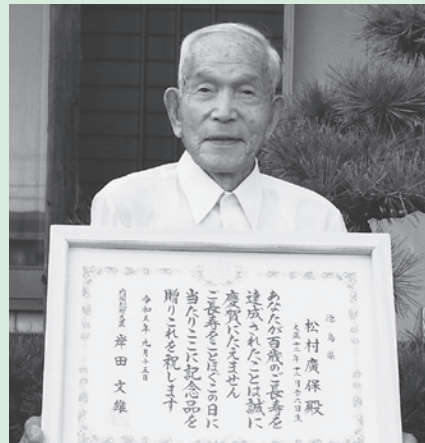 徳島県
松村廣保殿
大正十二年十二月二十八日生
あなたが百歳のご長寿を
達成されたことは誠に
慶賀にたえません
ご長寿をことほぐこの日に
当たりここに記念品を
贈りこれを祝します
令和五年九月十五日
内閣総理大臣 岸田文雄